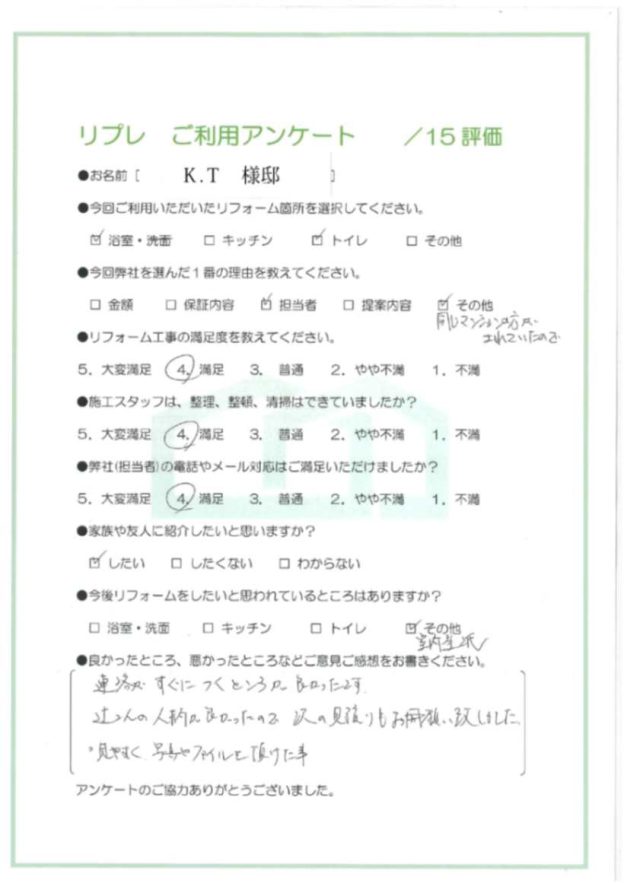 リプレ ご利用アンケート /15評価
●お名前 [ K.T 様邸 ]
●今回ご利用いただいたリフォーム箇所を選択してください。
☑ 浴室・洗面 □ キッチン ☑ トイレ □ その他
●今回弊社を選んだ1番の理由を教えてください。
□ 金額 □ 保証内容 ☑ 担当者 □ 提案内容 ☑ その他
同じマンションの方が
されていたので
●リフォーム工事の満足度を教えてください。
5. 大変満足 4. 満足 3. 普通 2. やや不満 1. 不満
●施工スタッフは、整理、整頓、清掃はできていましたか?
5. 大変満足 4. 満足 3. 普通 2. やや不満 1. 不満
●弊社(担当者)の電話やメール対応はご満足いただけましたか?
5. 大変満足 4. 満足 3. 普通 2. やや不満 1. 不満
●家族や友人に紹介したいと思いますか?
☑ したい □ したくない □ わからない
●今後リフォームをしたいと思われているところはありますか?
□ 浴室・洗面 □ キッチン □ トイレ ☑ その他
●良かったところ、悪かったところなどご意見ご感想をお書きください。
連絡が すぐに つくところが 良かったです
さんの 人柄が良かったので 次の見積りもお願い致しました
・見やすく 写真やファイルを頂けた事
アンケートのご協力ありがとうございました。